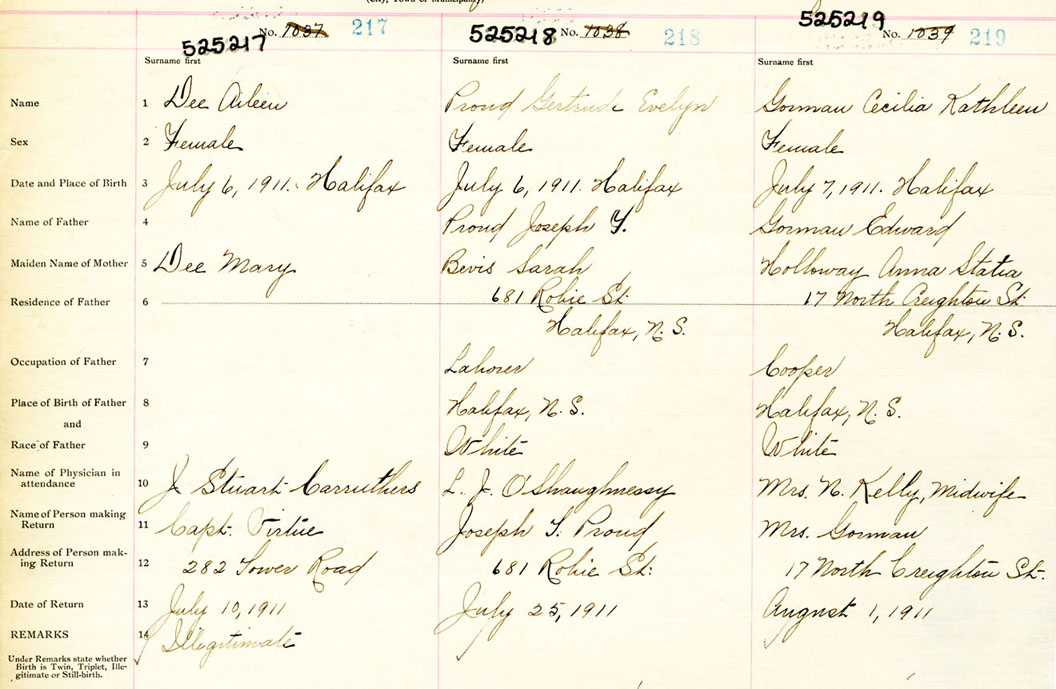 (City, Town or Municipality)
525217 No. 1037 217
525218 No. 1038 218
525219 No. 1039 219
Surname first Surname first Surname first
Name 1 Dee Aileen Proud Gertrude Evelyn Gorman Cecilia Kathleen
Sex 2 Female Female Female
Date and Place of Birth 3 July 6, 1911. Halifax July 6, 1911. Halifax July 7, 1911. Halifax
Name of Father 4 Proud Joseph Y. Gorman Edward
Maiden Name of Mother 5 Dee Mary Bevis Sarah Holloway Anna Statia
Residence of Father 6 681 Robie St. 17 North Creighton St.
Halifax, N.S. Halifax, N.S.
Occupation of Father 7 Laborer Cooper
Place of Birth of Father 8 Halifax, N.S. Halifax, N.S.
and
Race of Father 9 White White
Name of Physician in
attendance 10 J Stuart Carruthers L. J. O'Shaughnessy Mrs. N. Kelly, Midwife
Name of Person making
Return 11 Capt. Virtue Joseph Y. Proud Mrs. Gorman
Address of Person mak-
ing Return 12 282 Tower Road 681 Robie St. 17 North Creighton St.
Date of Return 13 July 10, 1911 July 25, 1911 August 1, 1911
REMARKS 14 Illegitimate
Under Remarks state whether
Birth is Twin, Triplet, Ille-
gitimate or Still-birth.